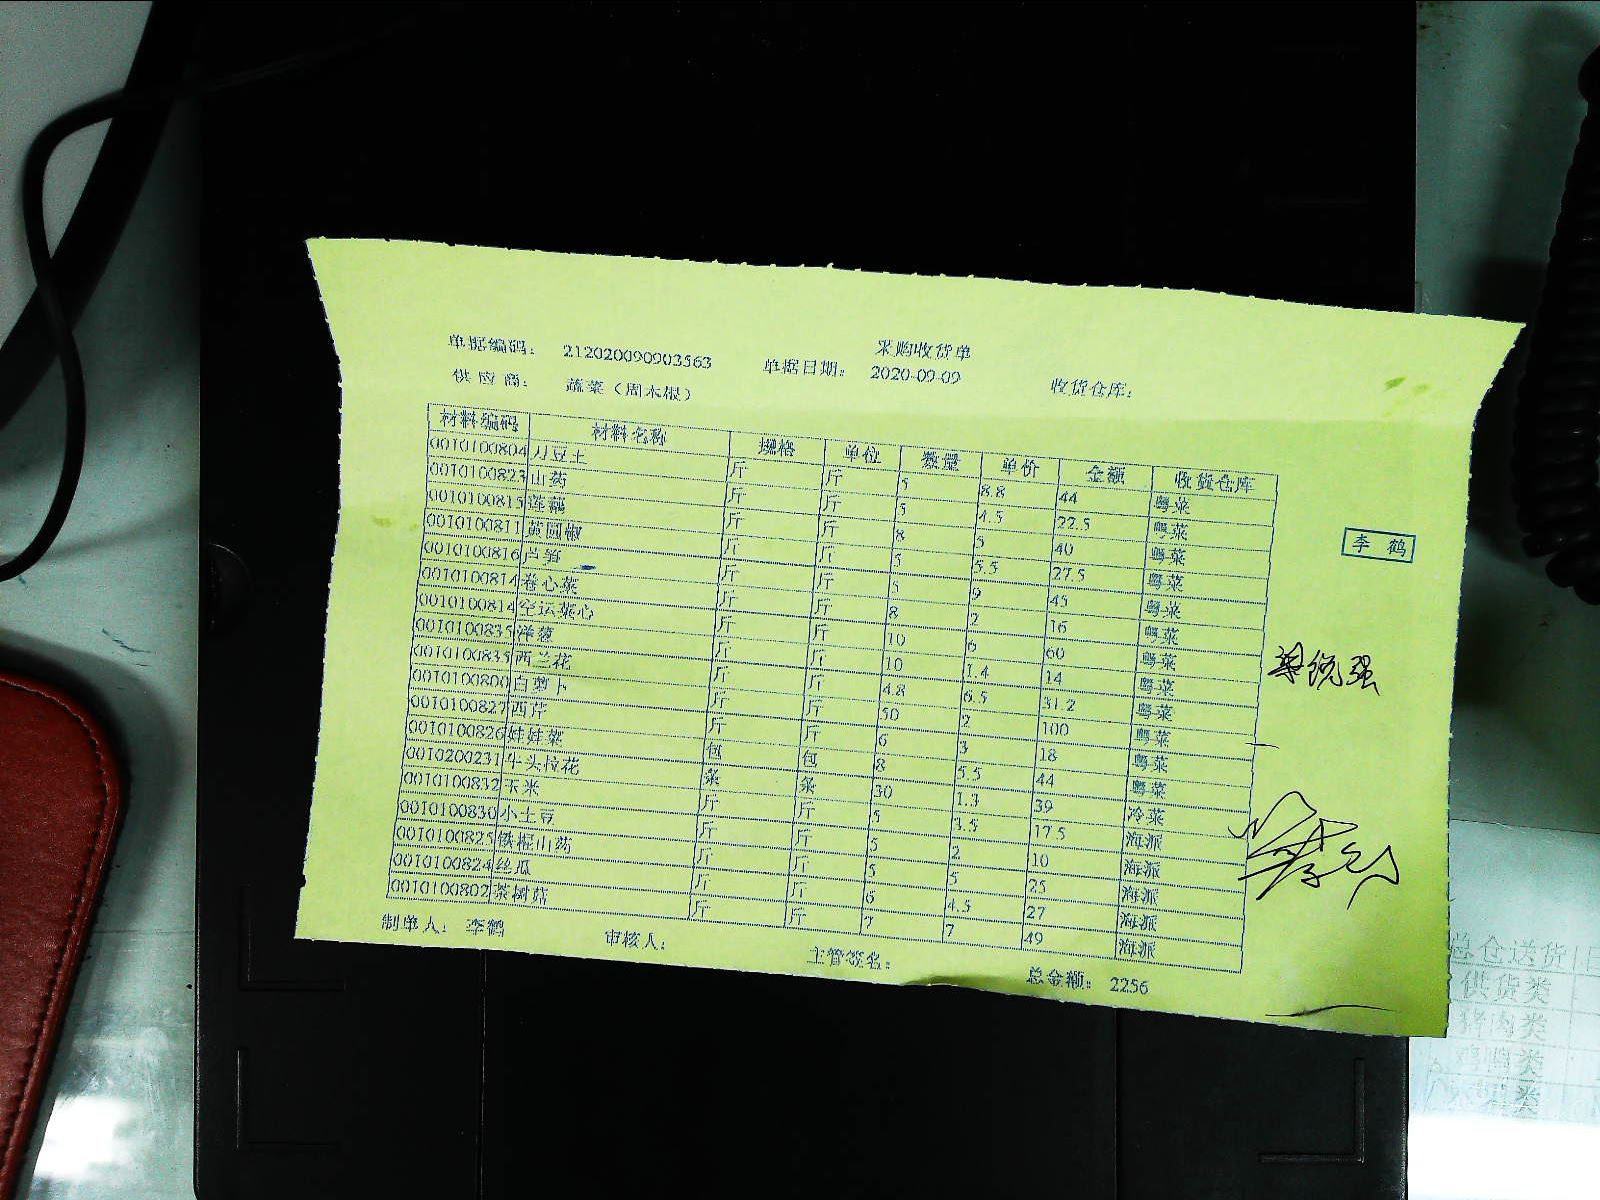 采购收货单
单据编码： 212020090903563 单据日期： 2020-09-09 收货仓库：
供 应 商： 蔬菜（周木根）
材料编码 材料名称 规格 单位 数量 单价 金额 收货仓库
0010100804 刀豆土 斤 斤 5 8.8 44 粤菜
0010100823 山药 斤 斤 5 4.5 22.5 粤菜
0010100815 莲藕 斤 斤 8 5 40 粤菜
0010100811 黄圆椒 斤 斤 5 5.5 27.5 粤菜
0010100816 芦笋 斤 斤 5 9 45 粤菜
0010100814 卷心菜 斤 斤 8 2 16 粤菜
0010100814 空运菜心 斤 斤 10 6 60 粤菜
0010100835 洋葱 斤 斤 10 1.4 14 粤菜
0010100835 西兰花 斤 斤 4.8 6.5 31.2 粤菜
0010100800 白萝卜 斤 斤 50 2 100 粤菜
0010100827 西芹 斤 斤 6 3 18 粤菜
0010100826 娃娃菜 包 包 8 5.5 44 粤菜
0010200231 牛头拉花 条 条 30 1.3 39 冷菜
0010100832 玉米 斤 斤 5 3.5 17.5 海派
0010100830 小土豆 斤 斤 5 2 10 海派
0010100825 铁棍山药 斤 斤 5 5 25 海派
0010100824 丝瓜 斤 斤 6 4.5 27 海派
0010100802 茶树菇 斤 斤 7 7 49 海派
制单人： 李鹤 审核人： 主管签名： 总金额： 2256
李 鹤
总仓送货
供货类
猪肉类
鸡鸭类